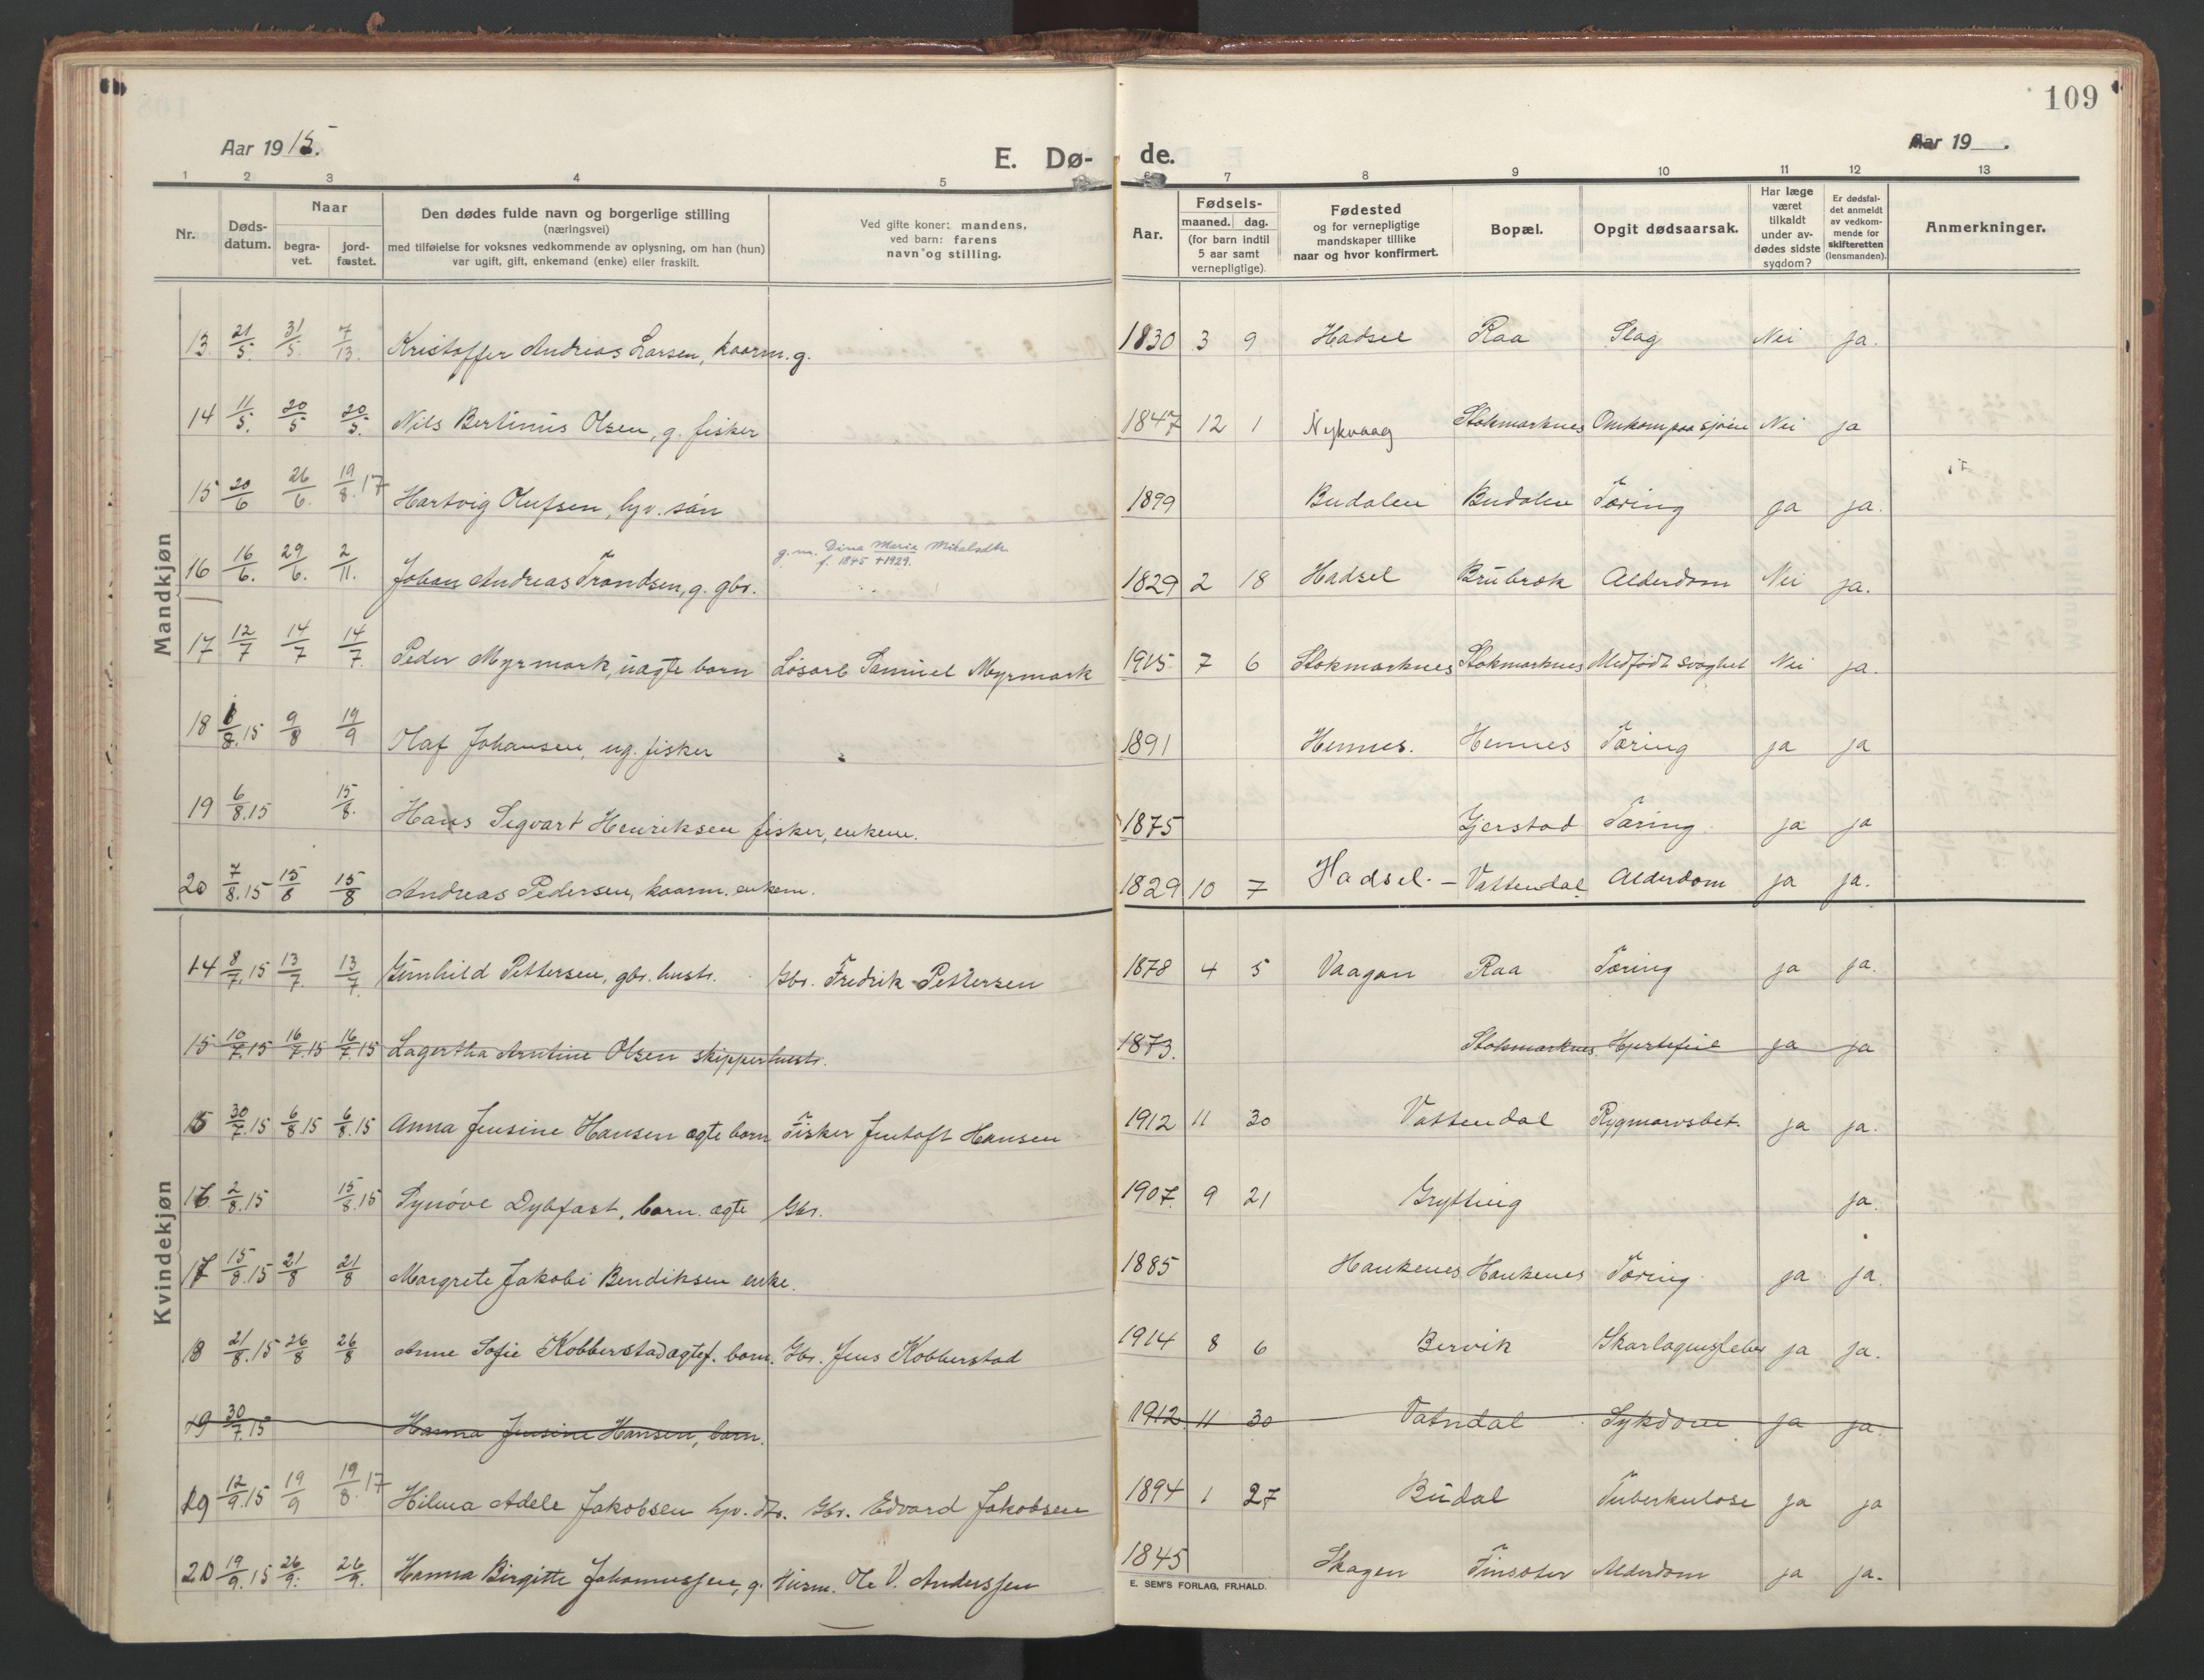 109
Aar 1915.
E. Dø- de.
Aar 19 .
1 2 3 4 5 6 7 8 9 10 11 12 13
Nr.
Døds-
datum.
Naar
begra-
vet.
jord-
fæstet.
Den dødes fulde navn og borgerlige stilling
(næringsvei)
med tilføielse for voksnes vedkommende av oplysning, om han (hun)
var ugift, gift, enkemand (enke) eller fraskilt.
Ved gifte koner: mandens,
ved barn: farens
navn og stilling.
Aar.
Fødsels-
maaned. dag.
(for barn indtil
5 aar samt
vernepligtige).
Fødested
og for vernepligtige
mandskaper tillike
naar og hvor konfirmert.
Bopæl.
Opgit dødsaarsak.
Har læge
været
tilkaldt
under av-
dødes sidste
sygdom?
Er dødsfal-
det anmeldt
av vedkom-
mende for
skifteretten
(lensmanden).
Anmerkninger.
Mandkjøn
13 21/5. 31/5. 7/13. Kristoffer Andreas Larsen, kaarm. g. 1830 3 9 Hadsel Raa Slag Nei ja.
14 11/5. 20/5 20/5. Nils Bertinius Olsen, g. fisker 1847 12 1 Nykvaag Stokmarknes Omkom paa sjøen Nei ja
15 20/6 26/6. 19/8.17 Hartvig Olufsen, hjv. søn 1899 Budalen Budalen Tæring ja ja.
g.m. Dina Maria Mikalsdtr.
f. 1845 +1929.
16 16/6. 29/6. 2/11. Johan Andreas Trondsen, g. gbr. 1829 2 18 Hadsel Brubrek Alderdom Nei ja.
17 12/7 14/7 14/7. Peder Myrmark, uægte barn Løsarb. Samuel Myrmark 1915 7 6 Stokmarknes Stokmarknes Medfødt svaghet Nei ja.
18 8/8.15 9/8 19/9 Olaf Johansen, ug. fisker 1891 Hennes. Hennes Tæring ja ja
19 6/8.15 15/8. Hans Sigvart Henriksen fisker, enkem. 1875 Gjerstad Tæring ja ja
20 7/8.15 15/8 15/8 Andreas Pedersen, kaarm. enkem. 1829 10 7 Hadsel. - Vattendal Alderdom ja ja.
Kvindekjøn
14 8/7.15 13/7. 13/7 Gunhild Pettersen, gbr. hustr. Gbr. Fredrik Pettersen 1878 4 5 Vaagan Raa Tæring ja ja.
15 10/7.15 16/7.15 16/7.15 Lagertha Arntine Olsen skipperhustr. 1873. Stokmarknes. Hjertefeil ja ja
15 30/7.15 6/8.15 6/8.15 Anna Jensine Hansen ægte barn Fisker Jentoft Hansen 1912 11 30 Vattendal Rygmarvsbet. ja ja.
16 2/8.15 15/8.15 Synøve Dybfast, barn. ægte Gbr. 1907. 9 21 Grytting ja.
17 15/8.15 21/8 21/8 Margrete Jakobi Bendiksen enke. 1885 Haukenes Haukenes Tæring ja ja.
18 21/8.15 26/8 26/8 Anne Sofie Kobberstad ægtef. barn. Gbr. Jens Kobberstad 1914 8 6 Bervik Skarlagensfeber ja ja.
19 30/7.15 Hanna Jensine Hansen, barn. 1912 11 30 Vatndal Sykdom ja ja.
19 12/9.15 19/9 19/8.17 Hilma Adele Jakobsen hjv. dtr. Gbr. Edvard Jakobsen 1894 1 27 Budal Tuberkulose ja ja
20 19/9.15 26/9. 26/9. Hanna Birgitte Johannessen, g. Husm. Ole V. Anderssen 1845 Skagen Finsæter Alderdom ja ja.
E. SEM'S FORLAG, FR.HALD.